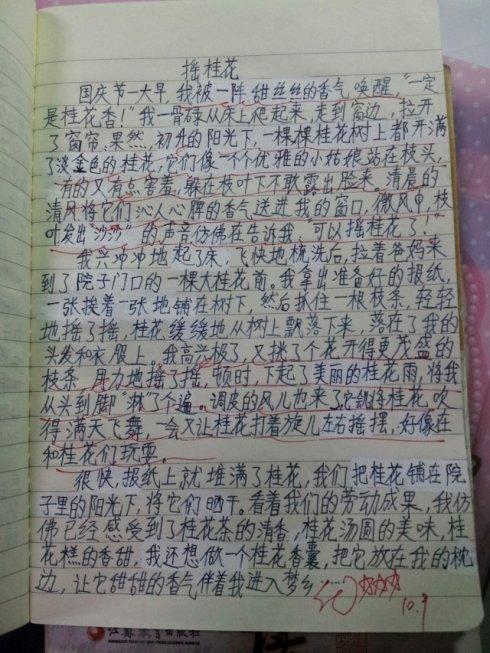 摇桂花
国庆节一大早,我被一阵甜丝丝的香气唤醒,“一定
是桂花香!”我一骨碌从床上爬起来,走到窗边,拉开
了窗帘,果然,初升的阳光下,一棵棵桂花树上都开满
了淡金色的桂花,它们像一个个优雅的小姑娘站在枝头,
有的又有点害羞,躲在枝叶下不敢露出脸来。清晨的
清风将它们沁人心脾的香气送进我的窗口,微风中,枝
叶发出“沙沙”的声音仿佛在告诉我,可以摇桂花了.”
我兴冲冲地起了床,飞快地梳洗后,拉着爸妈来
到了院子门口的一棵大桂花前。我拿出准备好的报纸,
一张挨着一张地铺在树下,然后抓住一根枝条,轻轻
地摇了摇,桂花缓缓地从树上飘落下来,落在了我的
头发和衣服上。我高兴极了,又挑了个花开得更茂盛的
枝条,用力地摇了摇,顿时,下起了美丽的桂花雨,将我
从头到脚“淋”了个遍。调皮的风儿也来了它们将桂花吹
得满天飞舞,一会又让桂花打着旋儿左右摇摆,好像在
和桂花们玩耍。
很快,报纸上就堆满了桂花,我们把桂花铺在院
子里的阳光下,将它们晒干。看着我们的劳动成果,我仿
佛已经感受到了桂花茶的清香,桂花汤圆的美味,桂
花糕的香甜,我还想做一个桂花香囊,把它放在我的枕
边,让它甜甜的香气伴着我进入梦乡……
10.9
江苏教育出版社